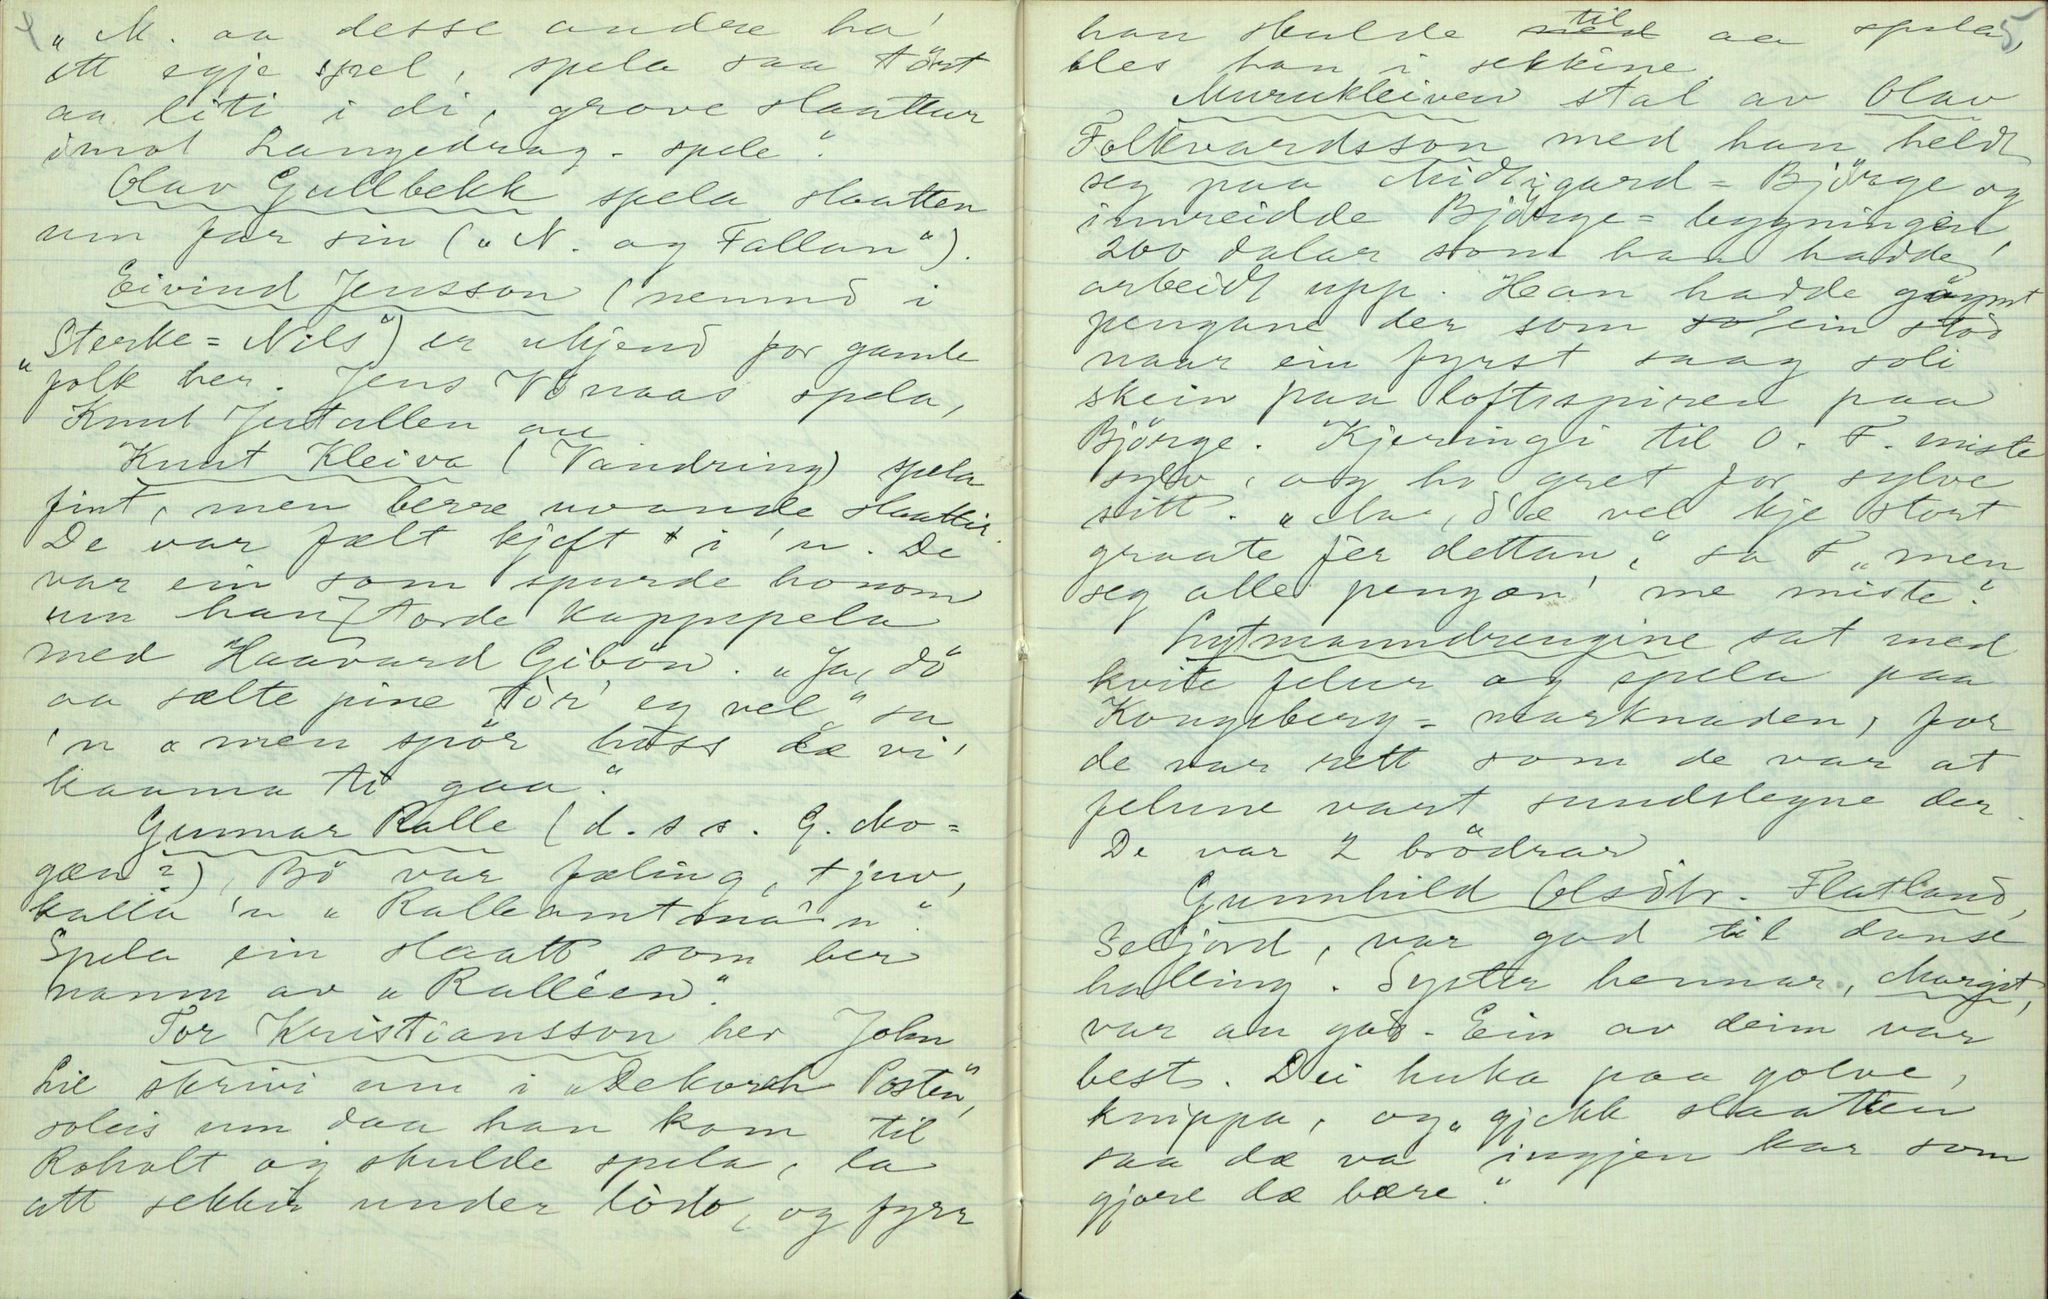 4
„M. aa desse andre ha'
ett egje spel, spela saa tört
aa liti i di, grove slaattur
imot Langedrag-spele".
Olav Gullbekk spela slaatten
um far sin („N. og Fallan").
Eivind Jensson (nemnd i
„Sterke=Nils") er ukjend for gamle
folk her. Jens Vönaas spela,
Knut Jutallen au
Knut Kleiva (Vandring) spela
fint, men berre uvande slaattir.
De var fælt kjeft i 'n. De
var ein som spurde honom
um han torde kappspela
med Haavard Gibön. „Ja, dö
aa sælte pine tör' eg vel," sa
'n „men spör höss dæ vi'
kaama ti gaa."
Gunnar Ralle (d.s.s. G. Mo=
gæn?), Bö var fæling, tjuv,
kalla 'n „Ralleamtmānn".
Spela ein slaatt som ber
namn av „Ralléen".
Tor Kristiansson her John
Lie skrivi um i „Dekorah Posten",
soleis um daa han kom til
Roholt og skulde spela, la
att sekkir under lödo, og fyrr
5
han skulde med til aa spela,
bles han i sekkine.
Murukleiven stal av Olav
Folkvardsson med han heldt
seg paa Midtigard=Björge og
innreidde Björge=bygningen,
200 dalar som han hadde
arbeidt upp. Han hadde göymt
pengane der som so ein stod
naar ein fyrst saag soli
skein paa loftsspiren paa
Björge. Kjeringi til O. F. miste
sylv, og ho gret for sylve
sitt. „Aa, d'æ vel kje stort
graate fer dettan," sa F „men
seg alle pengan' me miste."
Lytmanndrengine sat med
kvite felur og spela paa
Kongsberg=marknaden, for
de var rett som de var at
felune vart sundslegne der.
De var 2 brödrar
Gunnhild Olsdtr. Flatland,
Seljord, var god til danse
halling. Syster hennar, Margit,
var au god. Ein av deim var
best. Dei huka paa golve,
knippa, og „gjekk slaatten
saa dæ va' ingjen kar som
gjore dæ bære".